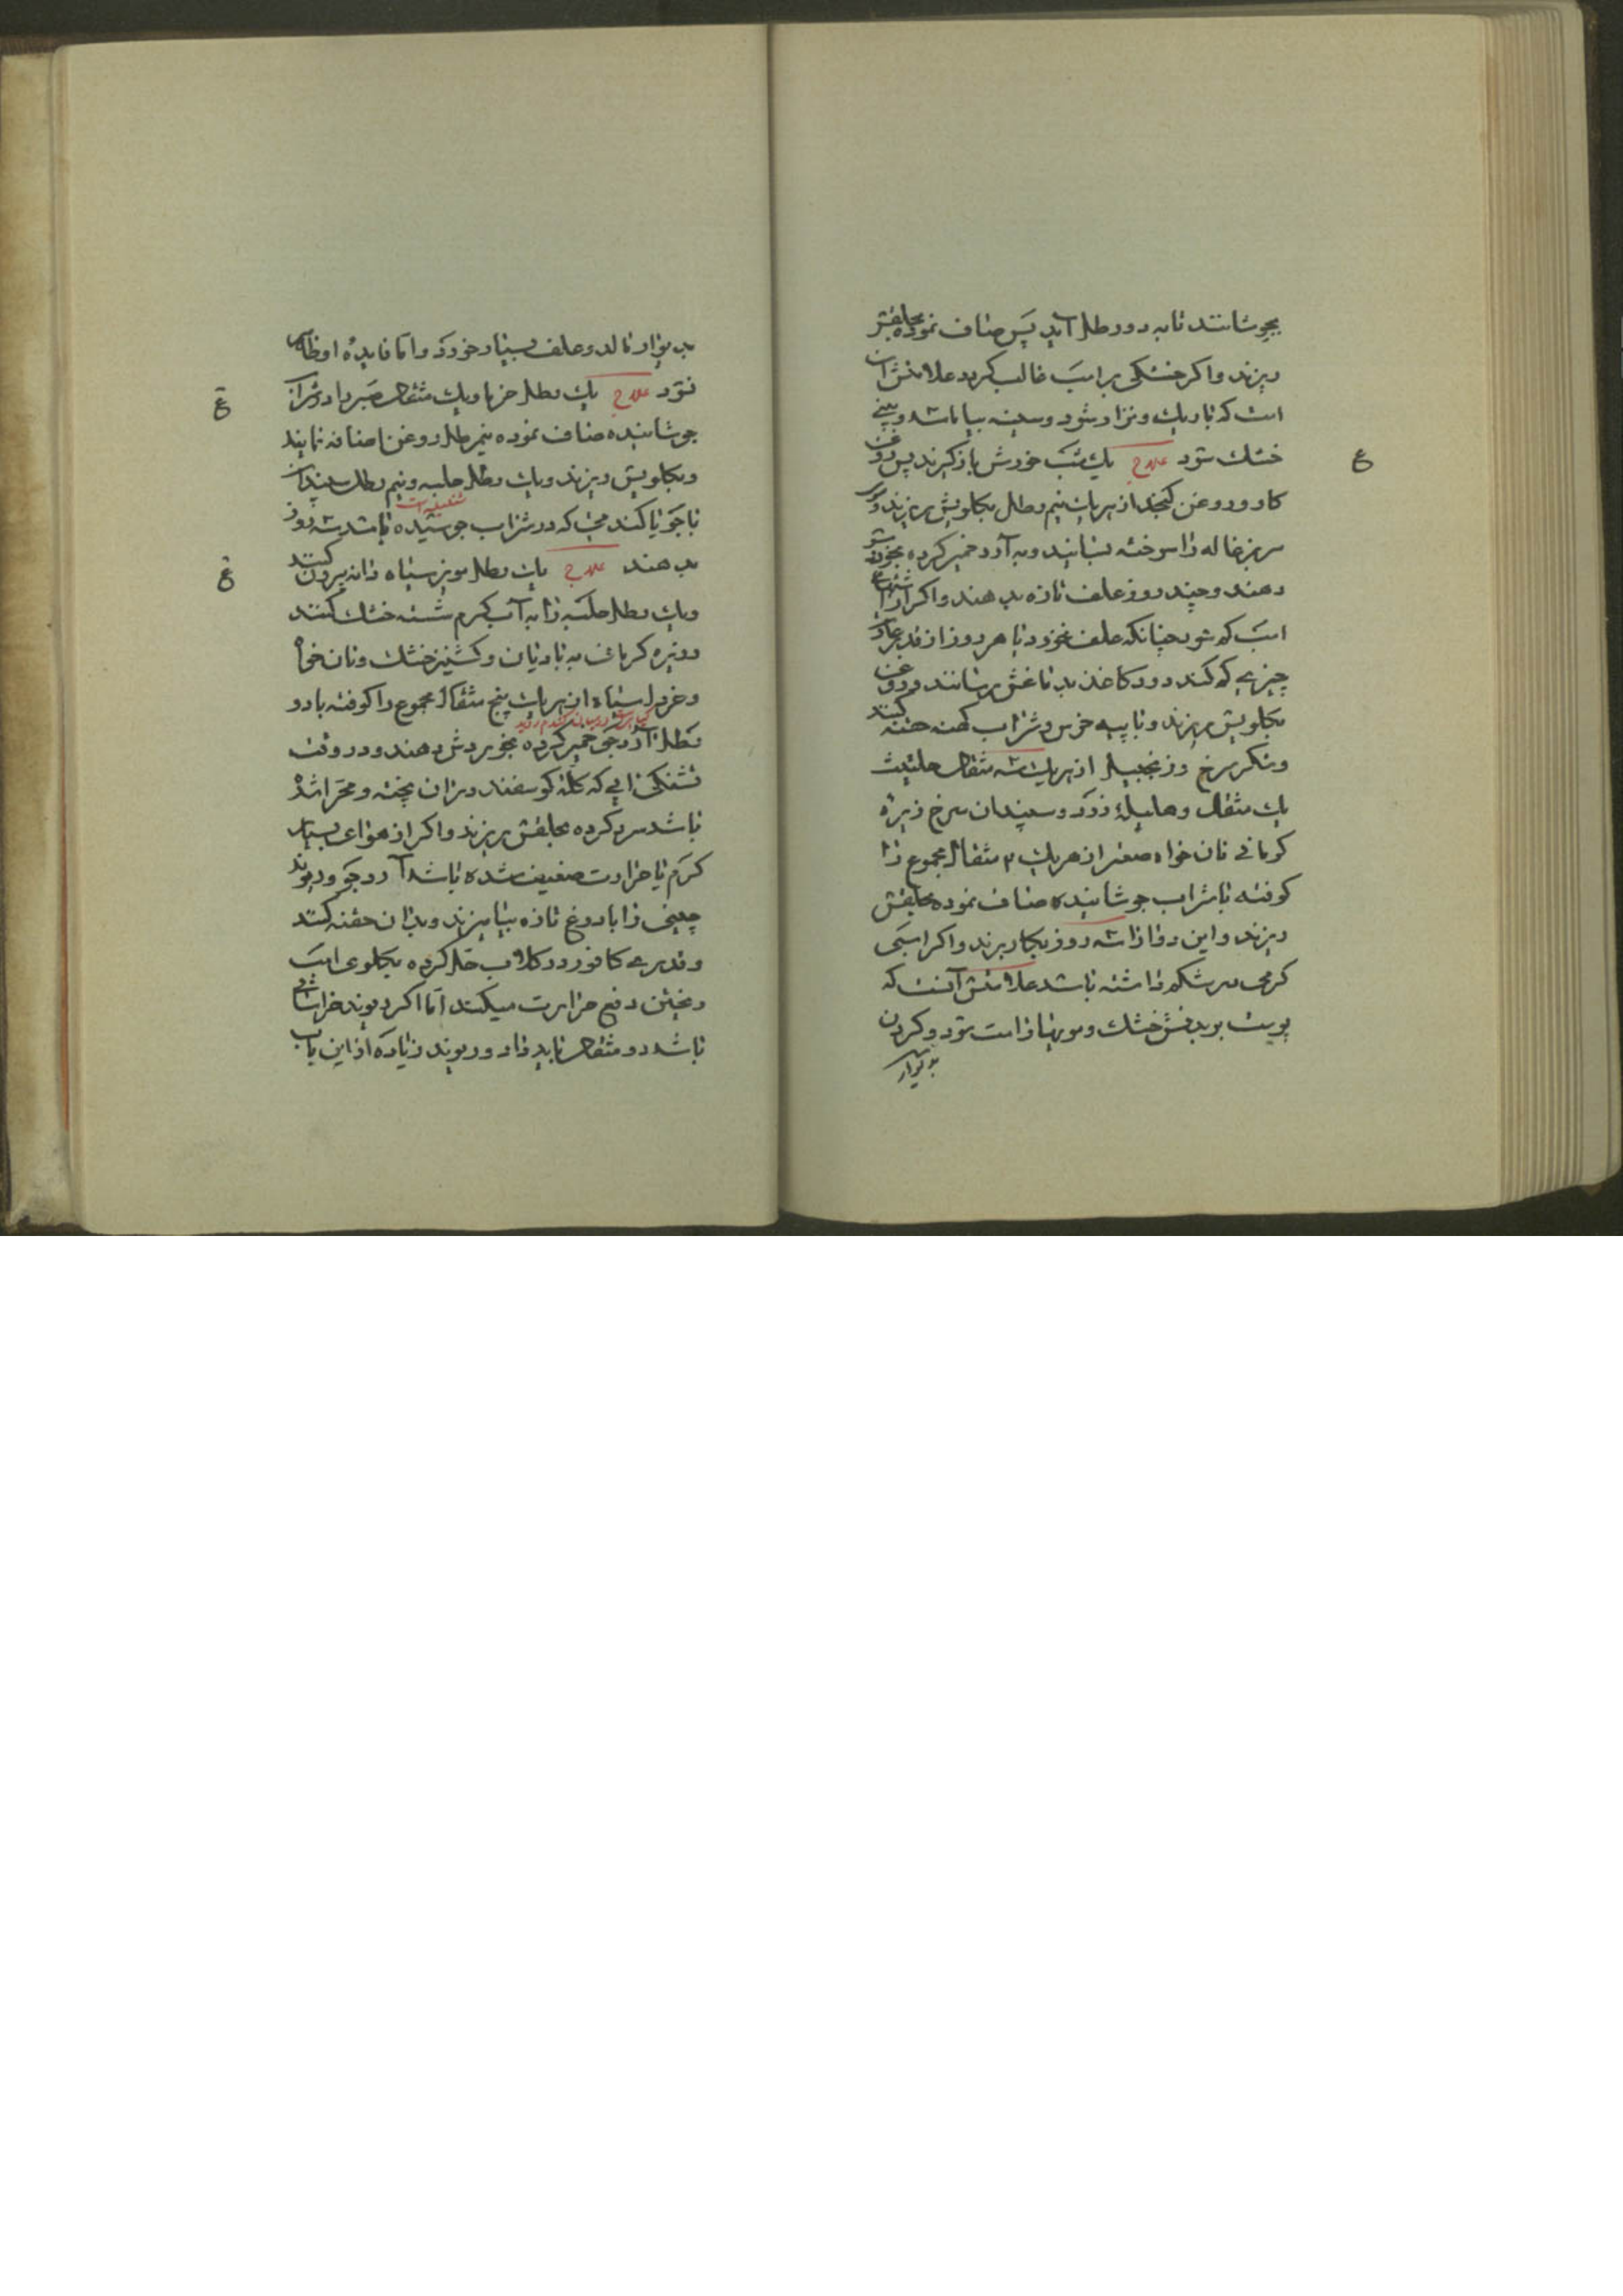 بجوشانند تا به دو رطل آید پس صاف نموده بحلقش
ریزند و اکر خشکی بر اسب غالب کردد علامتش ان
است که باریك و نزار شود و سینه بیاماسد و بینی
خشك شود علاج یك شب خورش باز کیرند پس روغن
کاو و روغن کنجد از هریك نیم رطل بکلویش ریزند و
سر بزغاله را سوخته بسایند و به آرد خمیر کرده بخورش
دهند و چند روز علف تازه بدهند و اکر از اشتهای
اسب کم شود چنانکه علف نخورد باید هر روز از قدر
چیزی که کند دود کاغذ بدماغش رسانند و روغن
بکلویش ریزند و با پیه خرس و شراب کهنه حقنه کنند
و شکر سرخ و زنجبیل از هریك سه مثقال حلتیت
یك مثقال و هلیلهٔ زرد و سپندان سرخ زیرهٔ
کرمانی نان خواه صعتر از هریك ۲ مثقال مجموع را
کوفته با شراب جوشانیده صاف نموده بحلقش
ریزند و این دوا را سه روز بکار برند و اکر اسبی
کرمی در شکم داشته باشد علامتش آنست که
پوست بر بدنش خشك و مویها راست شود و کردن
بدیوار
ع
بدیوار مالد و علف بسیار خورد و اما فایدهٔ او ظاهر
نشود علاج یك رطل خرما و یك مثقال صبر را در شراب
جوشانیده صاف نموده نیم رطل روغن اضافه نمایند
و بکلویش ریزند و یك رطل حلبه و نیم رطل سپندان
شنبلیله است
با جو یا کندمی که در شراب جوشیده باشد سه روز
بدهند علاج یك رطل مویز سیاه دانه بیرون کنند
و یك رطل حلبه را به آب کرم شسته خشك کنند
و زیره کرمانی به بادیان و کشنیز خشك و نان خواه
و خردل سیاه از هریك پنج مثقال مجموع را کوفته با دو
رطل آرد جو خمیر کرده بخوردش دهند و در وقت
تشنکی آبی که کلهٔ کوسفند در ان پخته و مهرا شده
باشد سرد کرده بحلقش ریزند و اکر از هوای بسیار
کرم یا حرارت ضعیف شده باشد آرد جو و ریوند
چینی را با دوغ تازه بیامیزند و بدان حقنه کنند
و قدری کافور در کلاب حل کرده بکلوی اسب
ریختن دفع حرارت میکند اما اکر ریوند خراسانی
باشد دو مثقال باید داد و ریوند زیاده از این باب
ع
ع